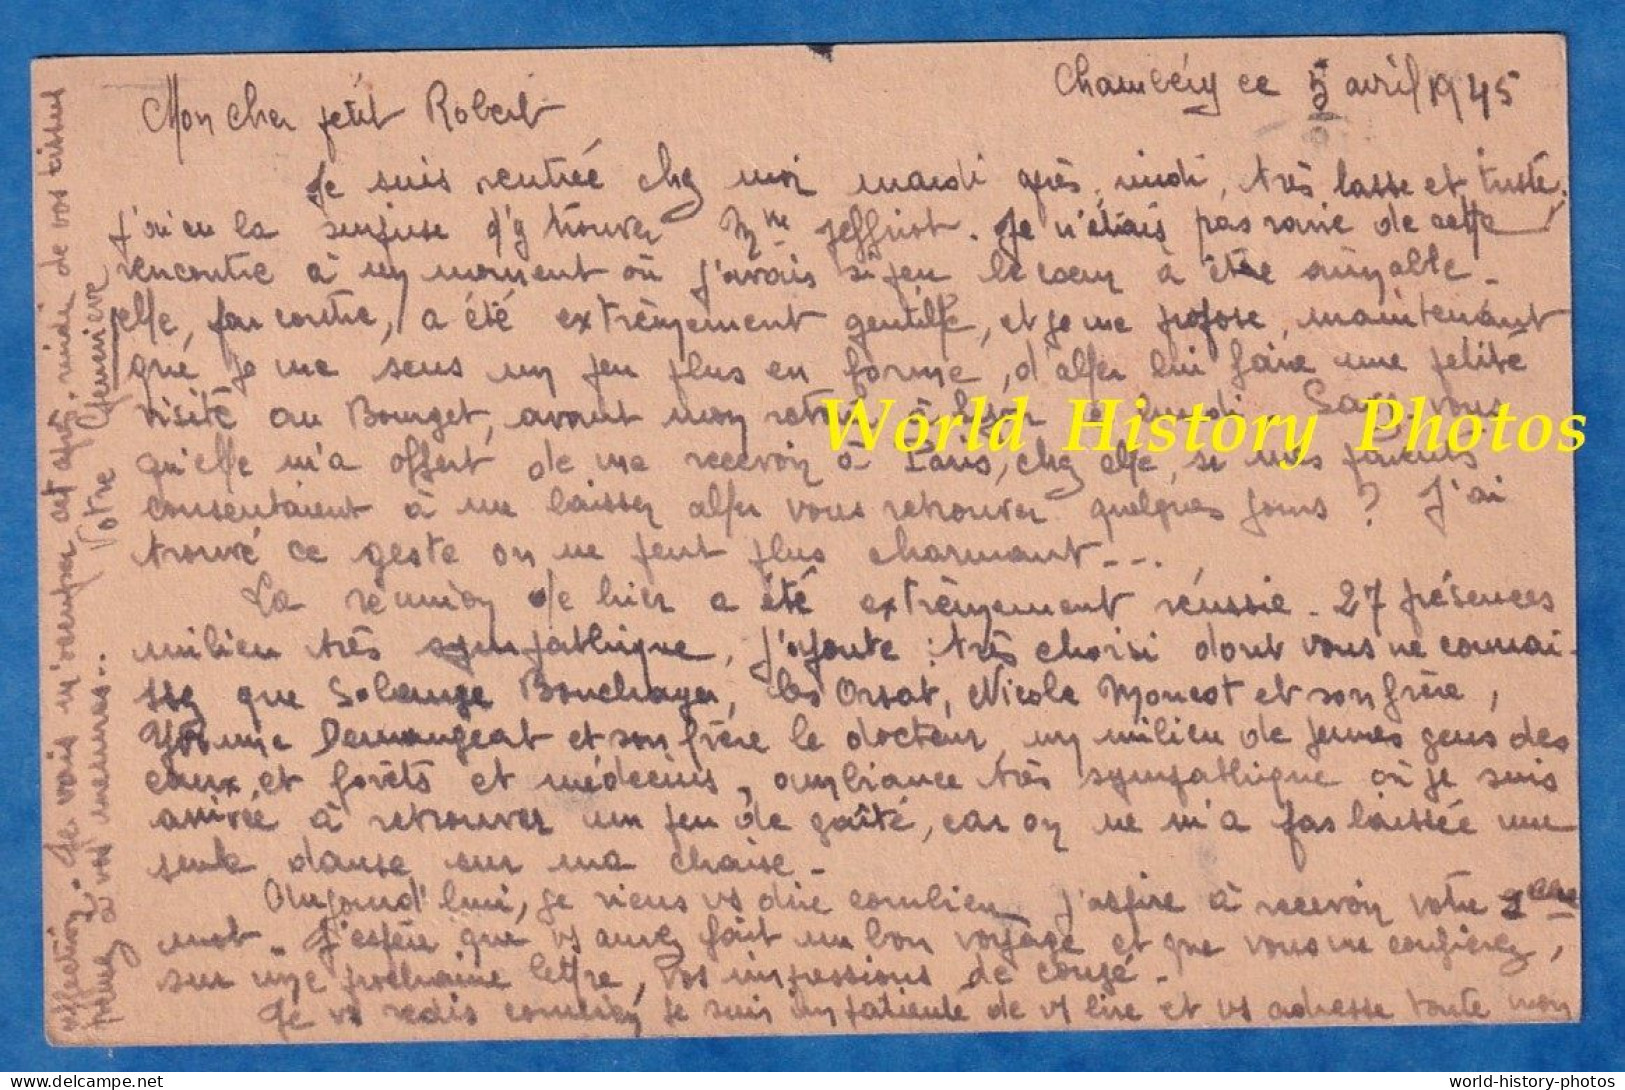 Chambéry ce 5 avril 1945
Mon cher petit Robert
Je suis rentrée chez moi mardi après, midi, très lasse et triste.
J'ai eu la d'y trouver Mme Jeffriot. Je n'étais pas ravie de cette
rencontre à un moment où j'avais si peu le coeur à être aimable.
elle, par contre, a été extrêmement gentille, et je me propose, maintenant
que je me sens un peu plus en forme, d'aller lui faire une petite
visite au Bourget, avant mon retour à Lyon le lundi. vous
qu'elle m'a offert de me recevoir à Paris, chez elle, si mes parents
consentaient à me laisser aller vous retrouver quelques jours ? J'ai
trouvé ce geste on ne peut plus charmant - - - .
La réunion de hier a été extrêmement réussie - 27 présences
milieu très sympathique, j'ajoute : très choisi dont vous ne connai-
ssez que Solange Bouchayer, les Orsat, Nicole Moncot et son frère,
Yvonne Demangeat et son frère le docteur, un milieu de jeunes gens des
eaux et forêts et médecins, ambiance très sympathique où je suis
arrivée à retrouver un peu de gaîté, car on ne m'a pas laissée une
seule danse sur ma chaise -
Aujourd'hui, je viens vs dire combien j'aspire à recevoir votre
mot - J'espère que vs aurez fait un bon voyage et que vous me confierez,
sur une prochaine lettre, vos impressions de congé -
Je vs redis combien je suis impatiente de vs lire et vs adresse toute mon
affection - Je vais m'occuper cet après, midi de vos tissus
prenez vos mesures..
Votre Geneviève
World History Photos
delcampe.net
world-history-photos